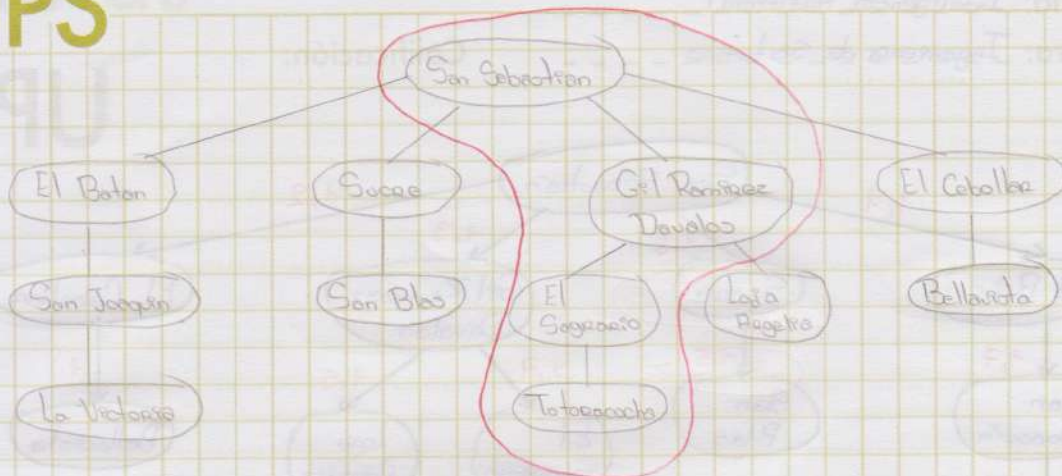 PS
San Sebastian
El Batan
Sucre
Gil Ramirez
Davalos
El Cebollar
San Joaquin
San Blas
El
Sagrario
Loja
Argelia
Bellavista
La Victoria
Totoracocha